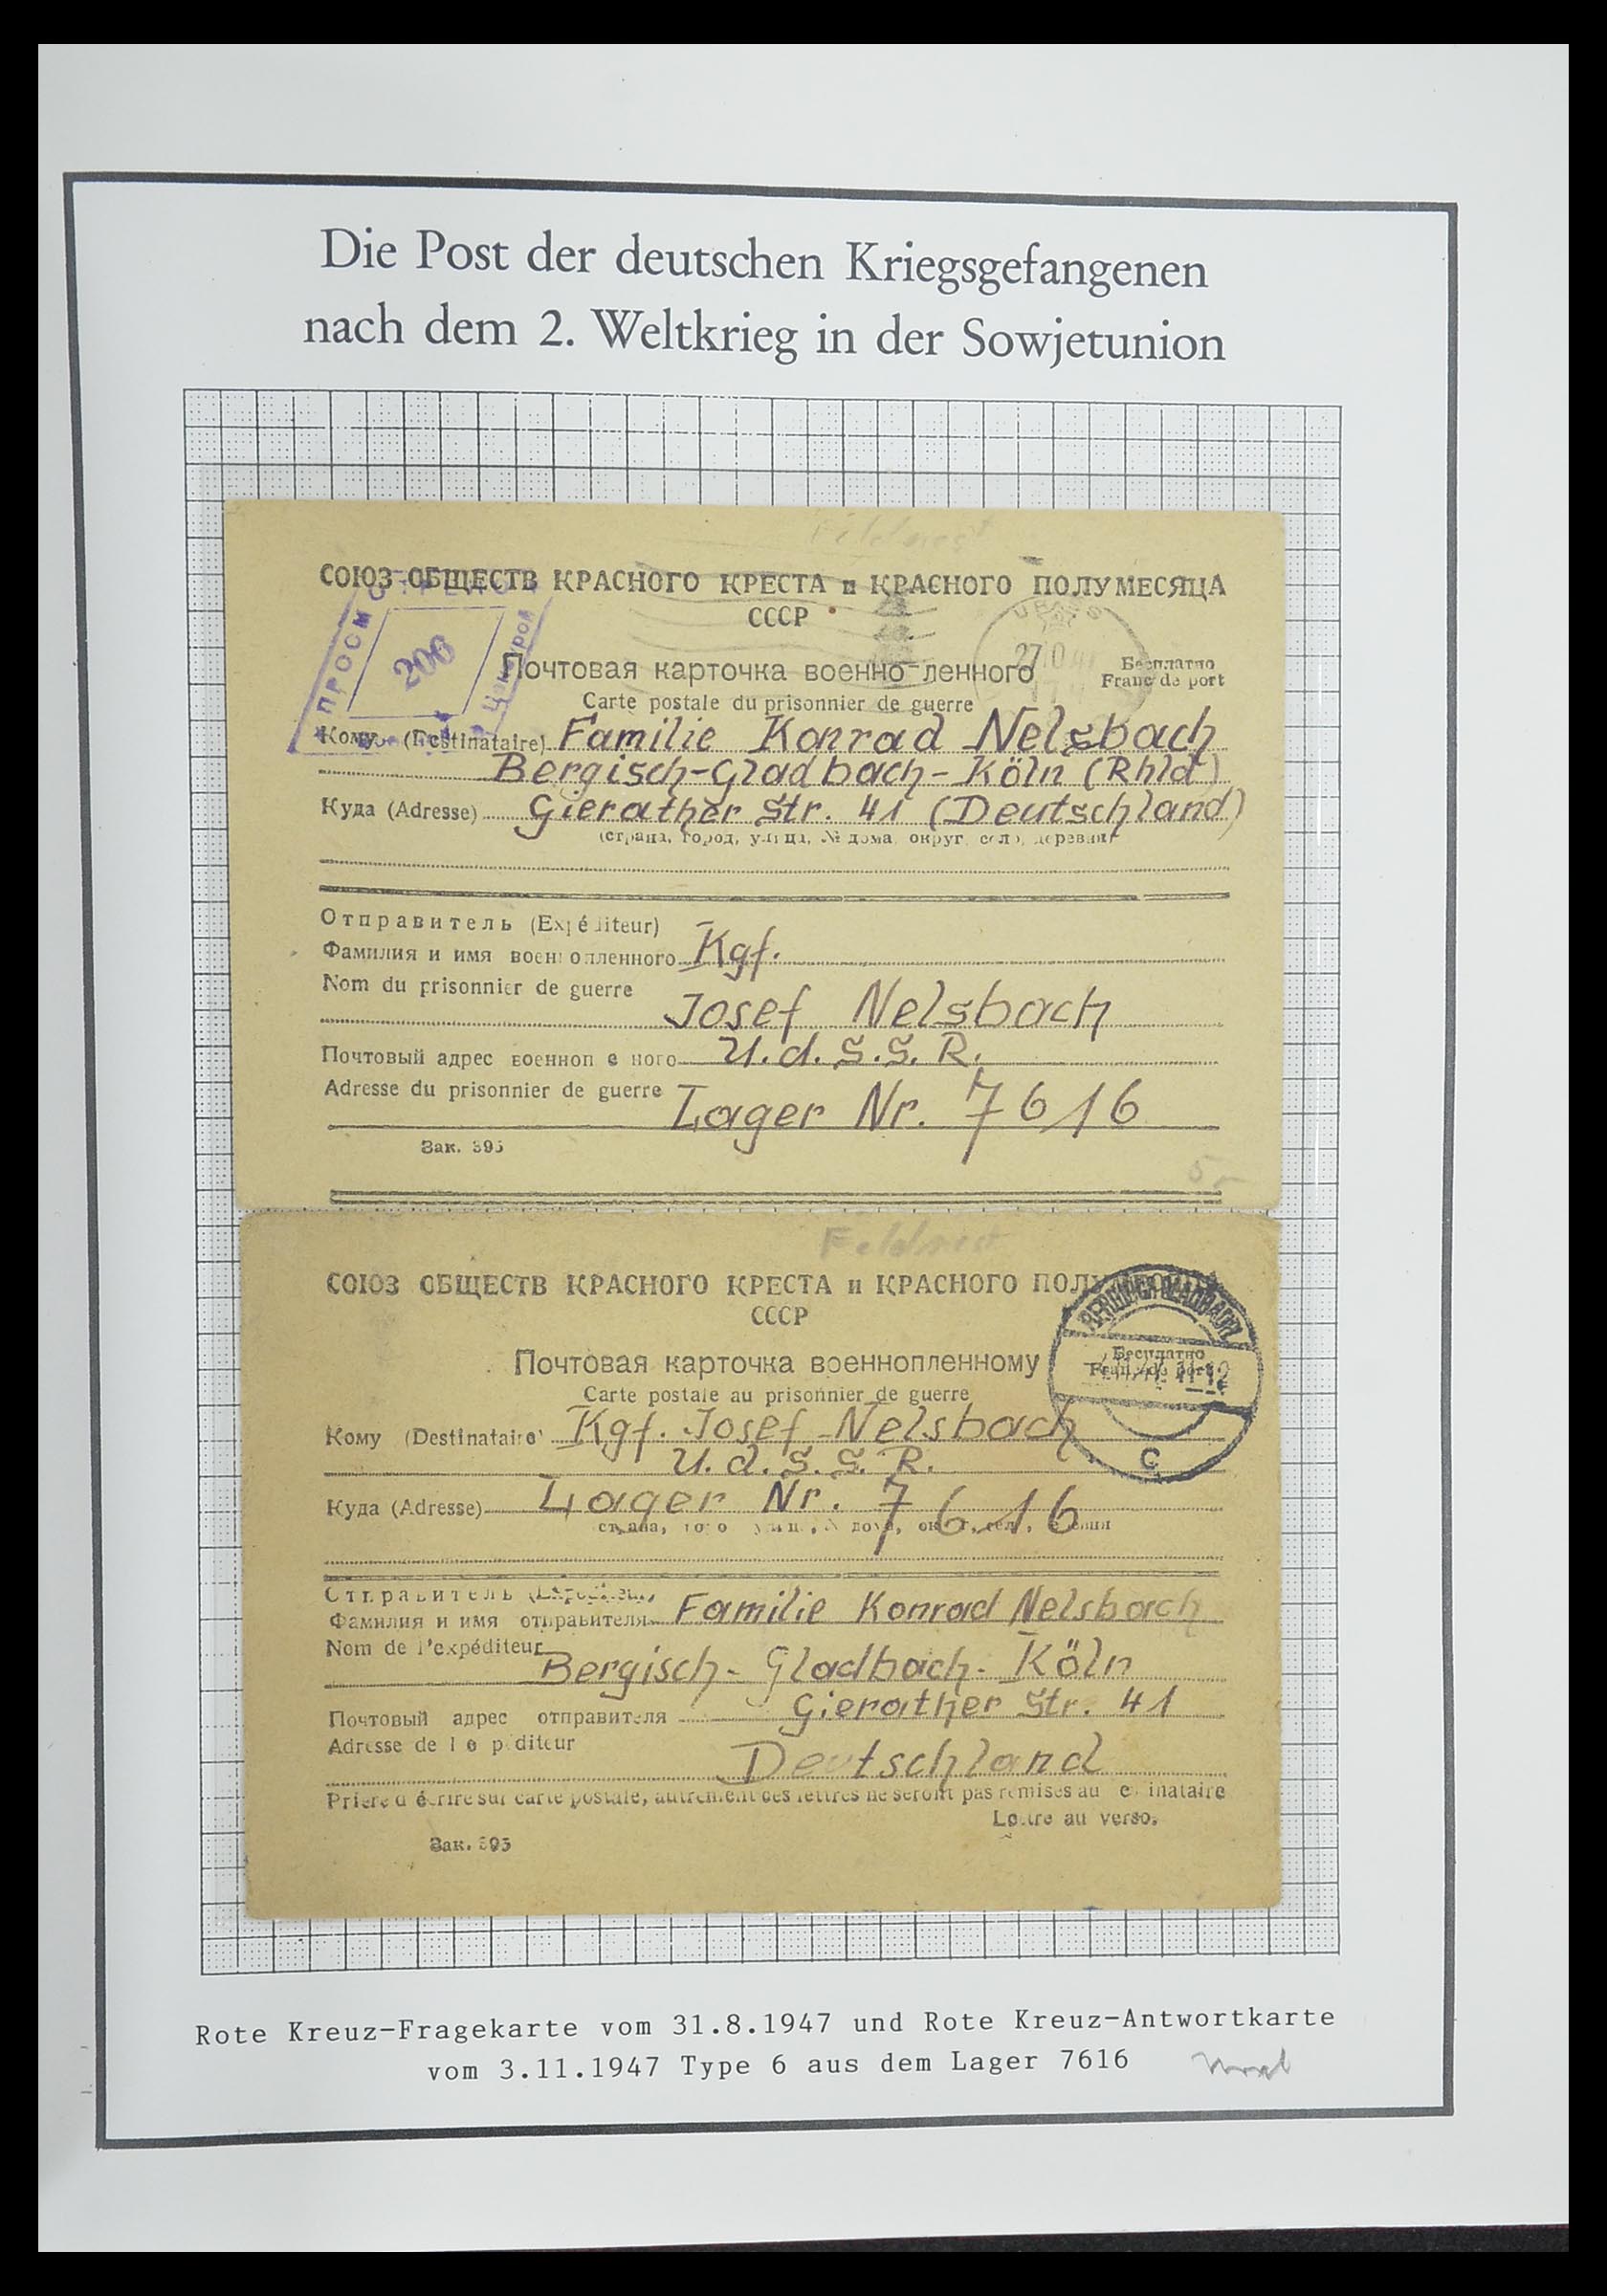 Die Post der deutschen Kriegsgefangenen
nach dem 2. Weltkrieg in der Sowjetunion
СОЮЗ ОБЩЕСТВ КРАСНОГО КРЕСТА и КРАСНОГО ПОЛУМЕСЯЦА
СССР
200
Почтовая карточка военно-ленного
Бесплатно
Carte postale du prisonnier de guerre
Franc de port
Кому (Destinataire) Familie Konrad Nelsbach
Bergisch-Gladbach-Köln (Rhld)
Куда (Adresse) Gierather Str. 41 (Deutschland)
(страна, город, улица, № дома, округ, село, деревня)
Отправитель (Expéditeur)
Фамилия и имя военнопленного Kgf.
Nom du prisonnier de guerre
Josef Nelsbach
Почтовый адрес военноп е ного U.d.S.S.R.
Adresse du prisonnier de guerre Lager Nr. 7616
Зак. 395
Feldpost
СОЮЗ ОБЩЕСТВ КРАСНОГО КРЕСТА и КРАСНОГО
СССР
BERGISCH GLADBACH
Почтовая карточка военнопленному
Бесплатно
Carte postale au prisonnier de guerre
Franc de port
Кому (Destinataire) Kgf. Josef Nelsbach
U.d.S.S.R.
C
Куда (Adresse) Lager Nr. 7616
Отправитель (Expéditeur)
Фамилия и имя отправителя Familie Konrad Nelsbach
Nom de l'expéditeur
Bergisch-Gladbach-Köln
Почтовый адрес отправителя Gierather Str. 41
Adresse de l e p diteur
Deutschland
Prière d'écrire sur carte postale, autrement ces lettres ne seront pas remises au e inataire
Lettre au verso.
Зак. 395
Rote Kreuz-Fragekarte vom 31.8.1947 und Rote Kreuz-Antwortkarte
vom 3.11.1947 Type 6 aus dem Lager 7616